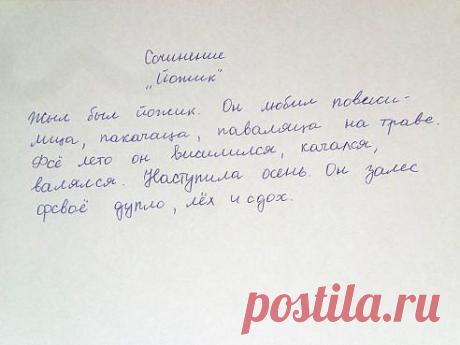 Сочинение
„Йожик“
Жыл был йожик. Он любил повиси-
лица, пакачаца, паваляца на траве.
Фсё лето он висилился, качался,
валялся. Наступила осень. Он залес
фсваё дупло, лёх и сдох.
postila.ru